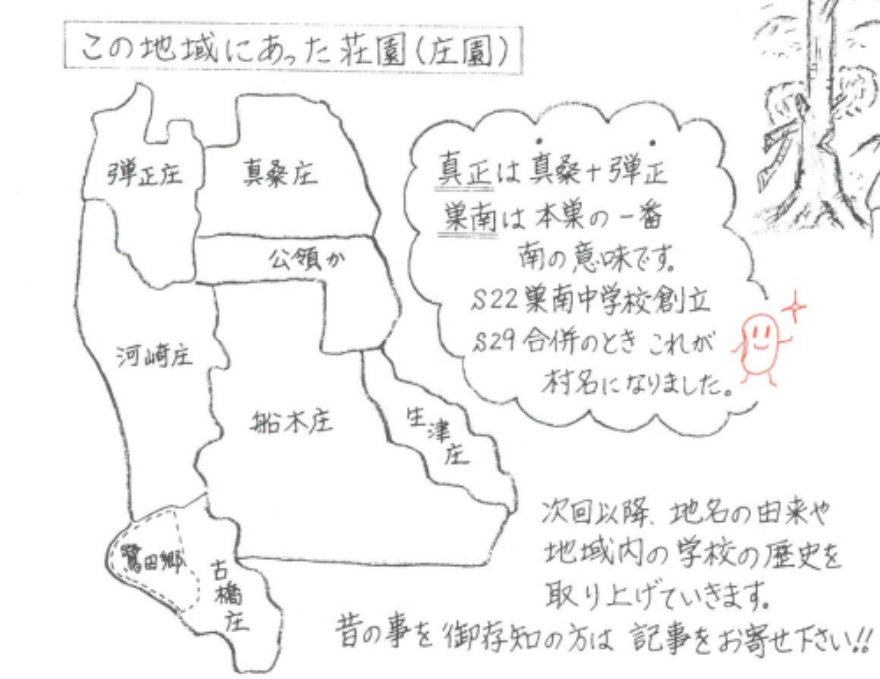 この地域にあった荘園(庄園)
弾正庄
真桑庄
公領か
河崎庄
船木庄
生津庄
鷺田郷
古橋庄
真正は真桑+弾正
巣南は本巣の一番
南の意味です。
S22巣南中学校創立
S29合併のとき これが
村名になりました。
次回以降、地名の由来や
地域内の学校の歴史を
取り上げていきます。
昔の事を御存知の方は 記事をお寄せ下さい!!